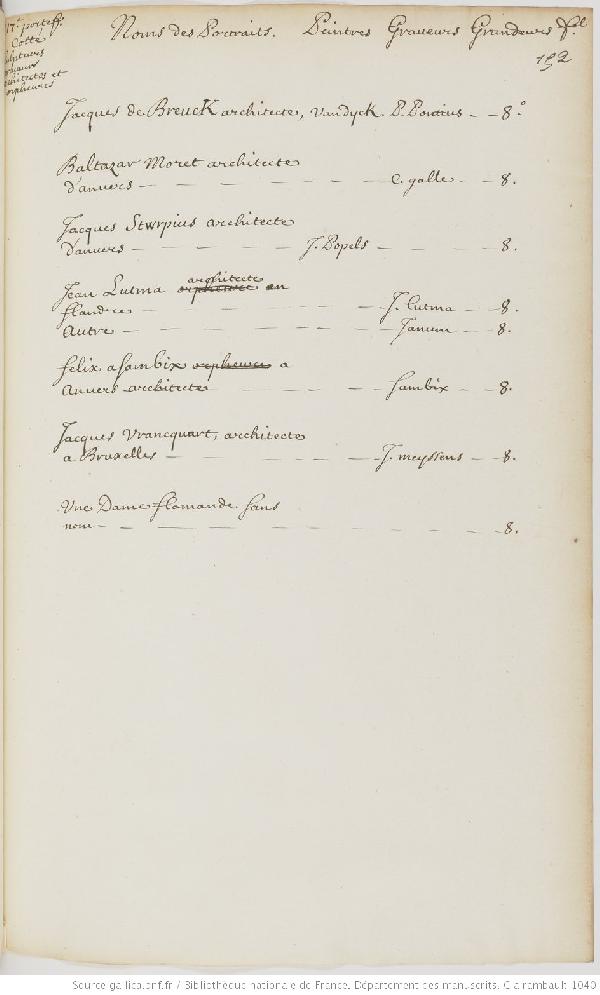 17.e porteff.
Cotté
sculpteurs
graveurs
architectes et
orpheures
Noms des Portraits. Peintres Graueurs Grandeurs fol
152
Jacques de Breuck architecte, Vandyck. P. Pontius - - 8.o
Baltazar Moret architecte
d'anuers - - - - - - C. galle - - 8.
Jacques Stwrpius architecte
d'anuers - - - - J. Popels - - - - 8.
architecte
Jean Lutma orpheure en
flandres - - - - - - J. lutma - 8.
Autre - - - - - - Janum - - 8.
felix a Sambix orpheure a
Anuers architecte - - - - Sambix - - 8.
Jacques Vrancquart, architecte
a Bruxelles - - - - - - J. meyssens - - 8.
Vne Dame flamande Sans
nom - - - - - - - - 8.
Source gallica.bnf.fr / Bibliothèque nationale de France. Département des manuscrits. Clairambault 1040